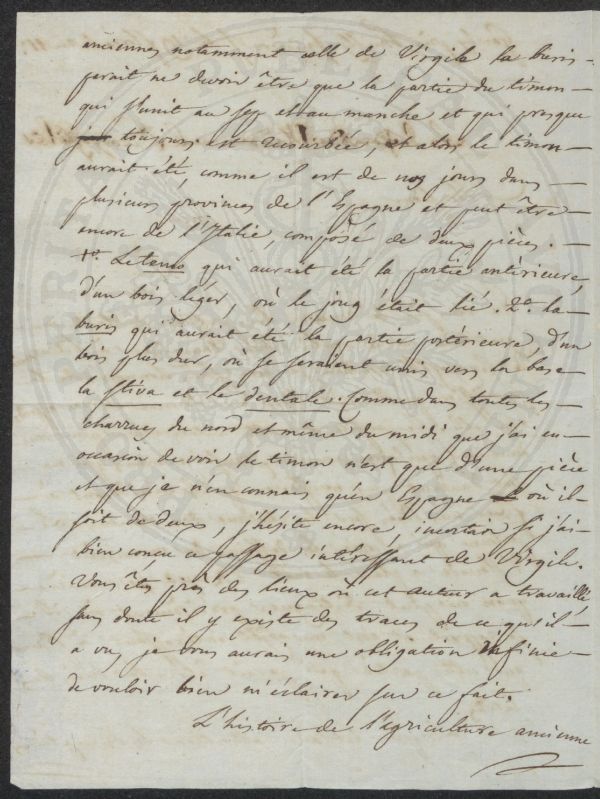 anciennes notamment celle de Virgile la buris —
serait ne devoir être que la partie du timon —
qui s'unit au sep et au manche et qui presque
toujours est recourbée, et alors le timon —
aurait été, comme il est de nos jours dans —
plusieurs provinces de l'Espagne et peut être —
encore de l'Italie, composé de deux pièces. —
1º. Le temo qui aurait été la partie antérieure,
d'un bois léger, où le joug était lié. 2º. la —
buris qui aurait été la partie postérieure, d'un
bois plus dur, où se seraient unis vers la base
la stiva et le dentale. Comme dans toutes les —
charrues du nord et même du midi que j'ai eu —
occasion de voir le timon n'est que d'une pièce
et que je n'en connais qu'en Espagne où il —
soit de deux, j'hésite encore, incertain si j'ai —
bien conçu ce passage intéressant de Virgile.
Vous êtes près des lieux où cet auteur a travaillé
sans doute il y existe des traces de ce qu'il —
a vu, je vous aurais une obligation infinie —
de vouloir bien m'éclairer sur ce fait.
L'histoire de l'agriculture ancienne